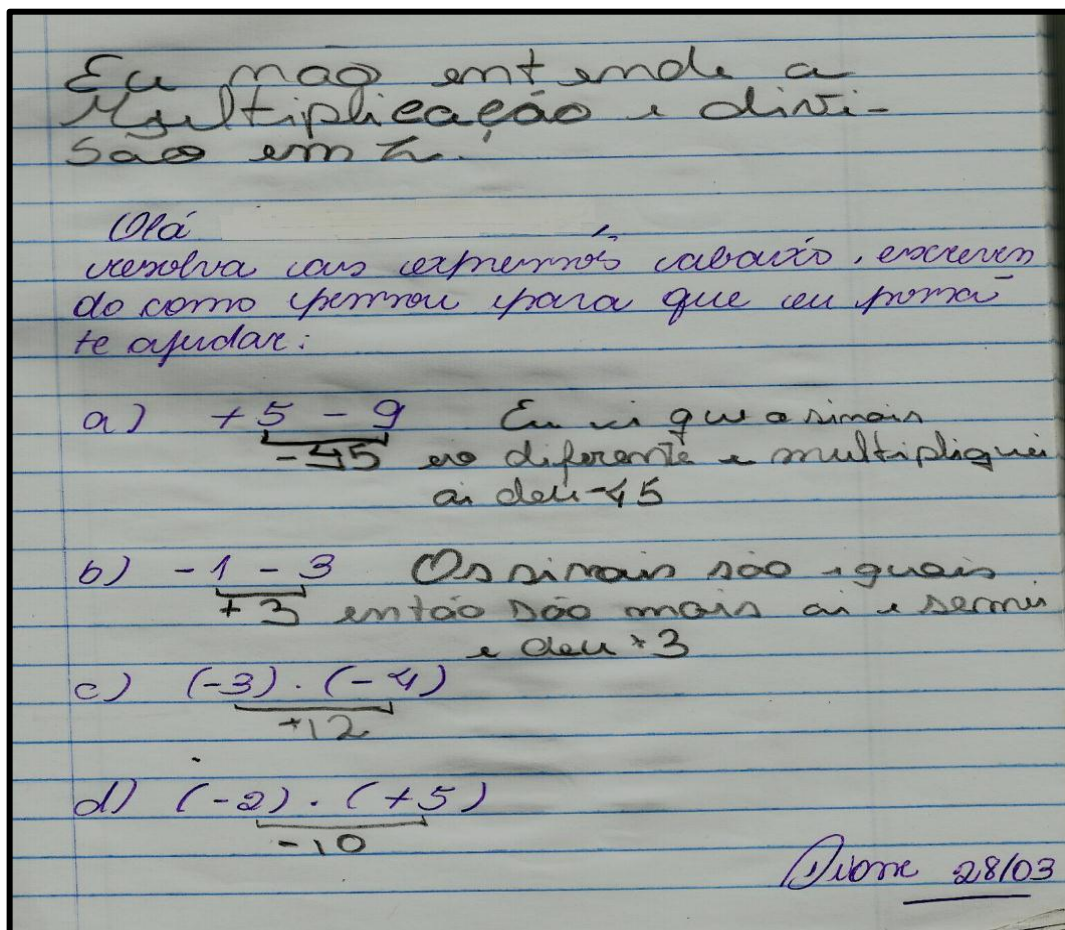 Eu não entende a
Multiplicação e divi-
são em Z.
Olá
resolva as expressões abaixo, escreven
do como pensou para que eu possa
te ajudar:
a) +5 - 9 Eu vi que o sinais
-45 eo diferente e multipliquei
ai deu -45
b) -1 - 3 Os sinais são iguais
+3 então são mais ai e
e deu +3
c) (-3) . (-4)
+12
d) (-2) . (+5)
-10
28/03